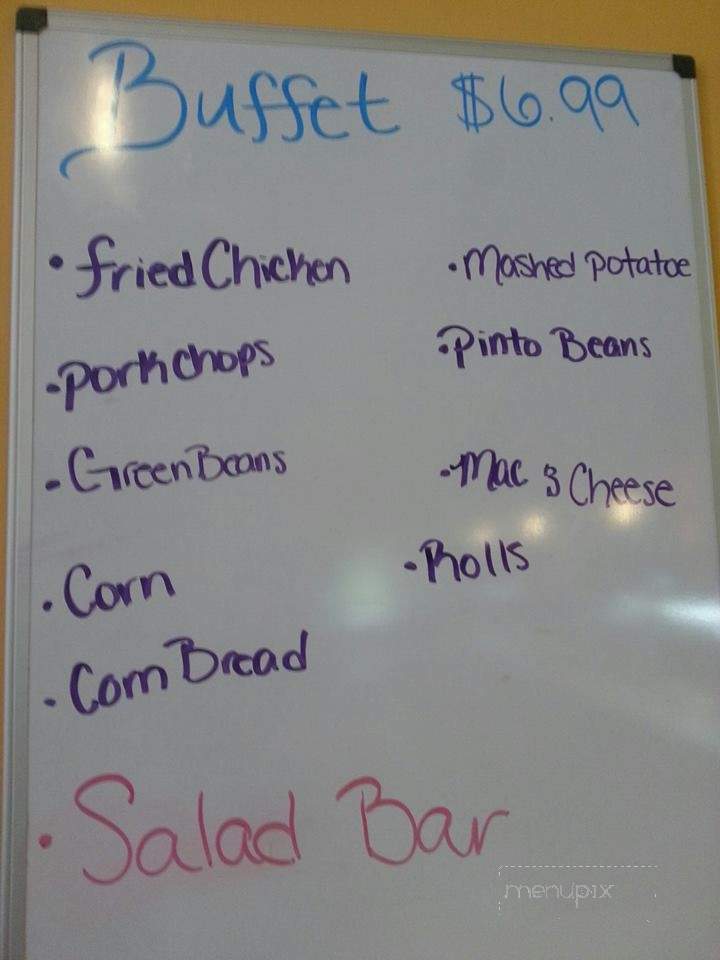 Buffet $6.99
• Fried Chicken
• Pork chops
• Green Beans
• Corn
• Corn Bread
• Mashed potatoe
• Pinto Beans
• Mac & Cheese
• Rolls
• Salad Bar
menupix